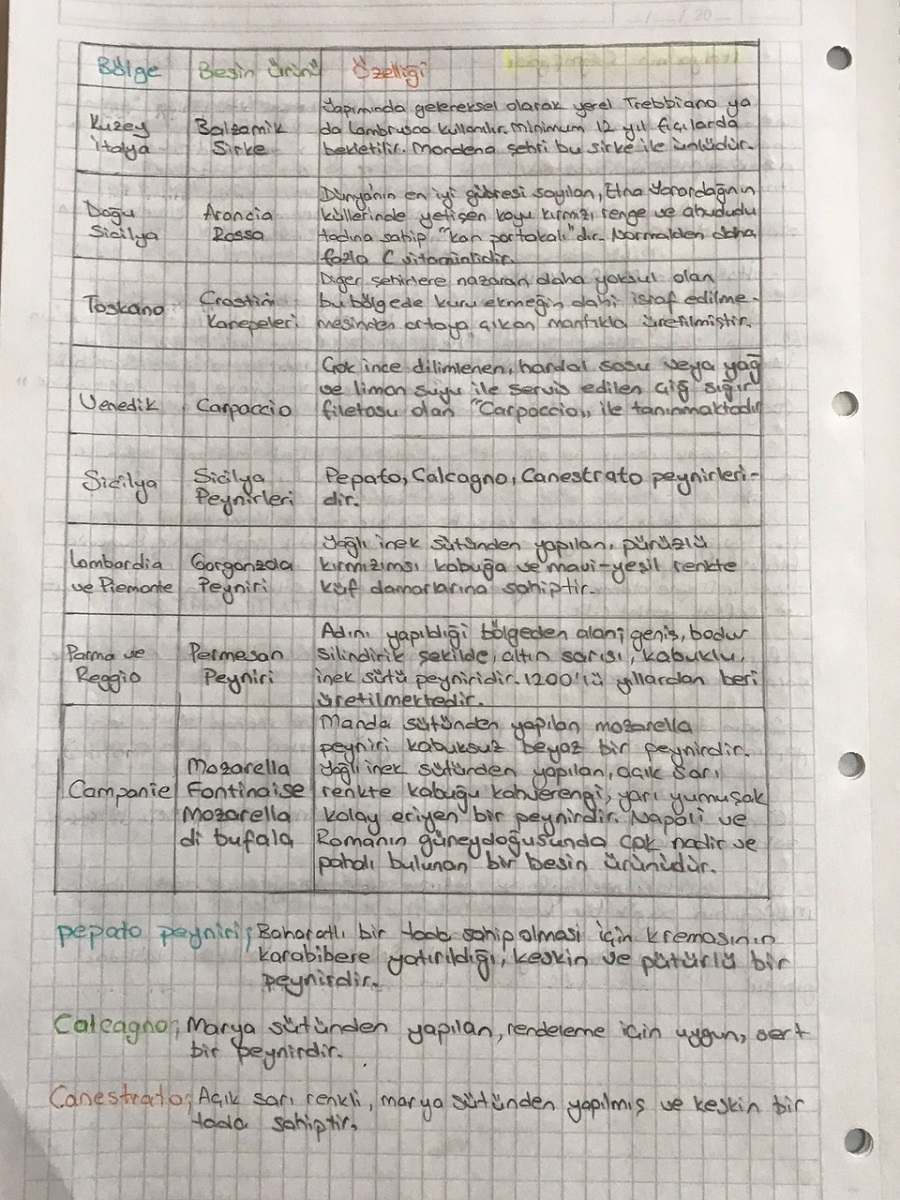 / / 20
Bölge Besin Ürünü Özelliği
Kuzey İtalya
Balzamik Sirke
Yapımında geleneksel olarak yerel Trebbiano ya
da lambrusco kullanılır. minimum 12 yıl fıçılarda
bekletilir. Mondena şehri bu sirke ile ünlüdür.
Doğu Sicilya
Arancia Rossa
Dünya'nın en iyi gübresi sayılan, Etna Yanardağının
küllerinde yetişen koyu kırmızı renge ve ahududu
tadına sahip "kan portakalı"dır. Normalden daha
fazla C vitaminlidir.
Toskana
Crostini Kanepeleri
Diğer şehirlere nazaran daha yoksul olan
bu bölgede kuru ekmeğin dahi israf edilme-
mesinden ortaya çıkan mantıkla üretilmiştir.
Venedik
Carpaccio
Çok ince dilimlenen, hardal sosu veya yağ
ve limon suyu ile servis edilen çiğ sığır
filetosu olan "Carpaccio" ile tanınmaktadır
Sicilya
Sicilya Peynirleri
Pepato, Calcagno, Canestrato peynirleri-
dir.
Lombardia ve Piemonte
Gorganzola Peyniri
Yağlı inek sütünden yapılan, pürüzlü
kırmızımsı kabuğa ve mavi-yeşil renkte
küf damarlarına sahiptir.
Parma ve Reggio
Permesan Peyniri
Adını yapıldığı bölgeden alan; geniş, bodur
silindirik şekilde, altın sarısı, kabuklu,
inek sütü peyniridir. 1200'lü yıllardan beri
üretilmektedir.
Campanie
Mozarella
Fontinaise
Mozarella
di bufala
Manda sütünden yapılan mozarella
peyniri kabuksuz beyaz bir peynirdir.
Yağlı inek sütünden yapılan, açık sarı
renkte kabuğu kahverengi, yarı yumuşak
kolay eriyen bir peynirdir. Napoli ve
Romanın güneydoğusunda çok nadir ve
pahalı bulunan bir besin ürünüdür.
pepato peyniri; Baharatlı bir tada sahip olması için kremasının
karabibere yatırıldığı, keskin ve pütürlü bir
peynirdir.
Calcagno; Marya sütünden yapılan, rendeleme için uygun, sert
bir peynirdir.
Canestrato; Açık sarı renkli, marya sütünden yapılmış ve keskin bir
tada sahiptir.